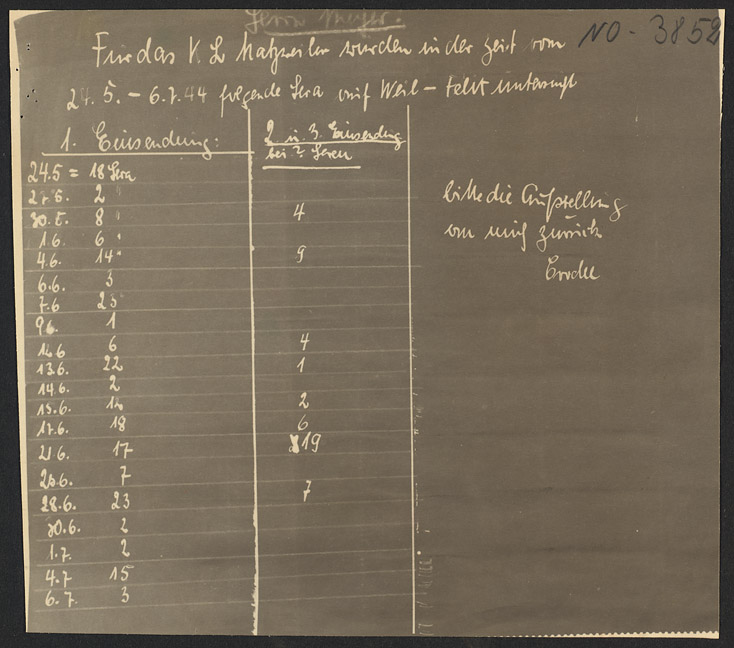 Herrn Meyer.
NO - 3852
Für das K L Natzweiler wurden in der Zeit vom
24. 5. - 6.7.44 folgende Sera auf Weil - Felix untersucht
1. Einsendung:
2 u. 3. Einsendung
bei ? Seren
24.5 = 18 Sera
27.5. 2 "
30.5. 8 " 4
1.6. 6 "
4.6. 14 " 9
6.6. 3
7.6 25
9.6. 1
6 4
13.6. 22 1
14.6. 2
15.6. 2
17.6. 18 6
21.6. 17 19
7
28.6. 23 7
30.6. 2
1.7. 2
4.7 15
6.7. 3
bitte die Aufstellung
an mich zurück